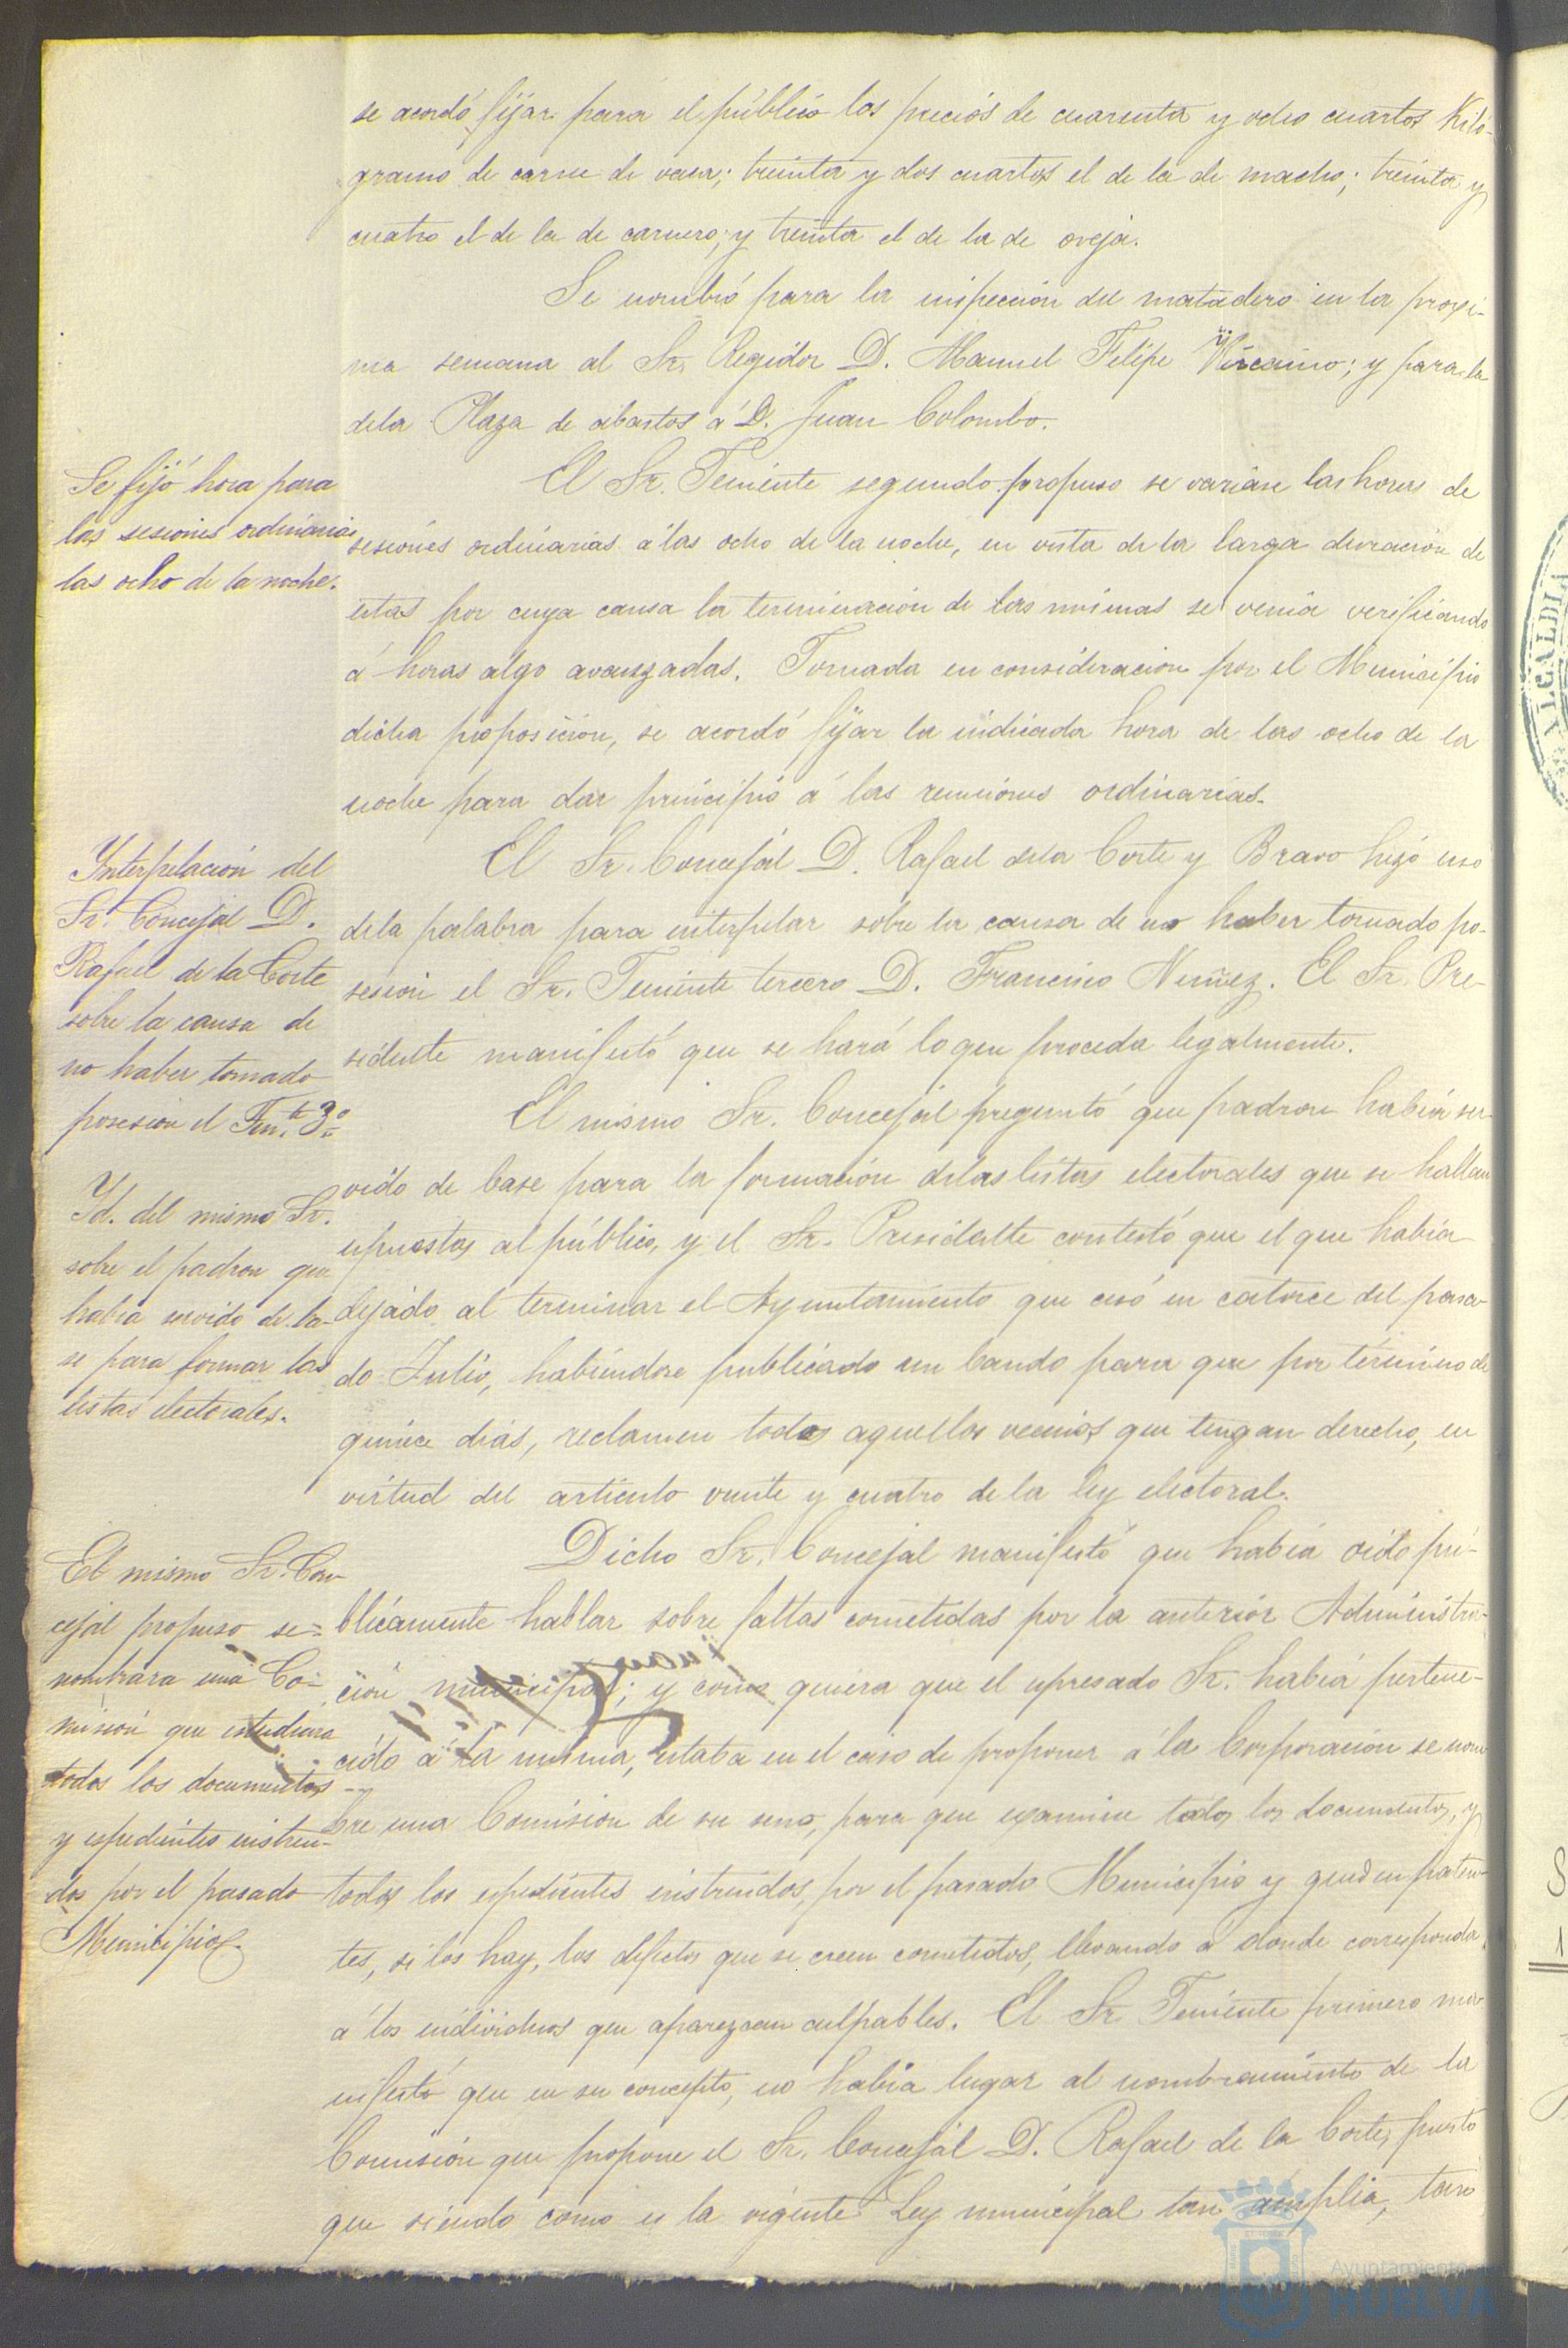 se acordó fijar para el público los precios de cuarenta y ocho cuartos Kiló-
gramo de carne de vaca; treinta y dos cuartos el de la de macho; treinta y
cuatro el de la de carnero; y treinta el de la de oveja.
Se nombró para la inspección del matadero en la proxi-
ma semana al Sr. Regidor D. Manuel Felipe Vizcaino; y para la
dela Plaza de abastos á D. Juan Colombo.
Se fijó hora para
las sesiones ordinarias
las ocho de la noche.
El Sr. Teniente segundo propuso se variase las horas de
sesiones ordinarias á las ocho de la noche, en vista de la larga duración de
estas por cuya causa la terminación de las mismas se venia verificando
á horas algo avanzadas. Tomada en consideracion por el Municipio
dicha proposición, se acordó fijar la indicada hora de las ocho de la
noche para dar principio á las reuniones ordinarias.
Interpelación del
Sr. Concejal D.
Rafael de la Corte
sobre la causa de
no haber tomado
posesion el Ten.te 3.º
El Sr. Concejal D. Rafael dela Corte y Bravo hizo uso
dela palabra para interpelar sobre la causa de no haber tomado po-
sesion el Sr. Teniente tercero D. Francisco Nuñez. El Sr. Pre-
sidente manifestó que se hará lo que proceda legalmente.
Yd. del mismo Sr.
sobre el padron que
habia servido de ba-
se para formar las
listas electorales.
El mismo Sr. Concejal preguntó que padron habia ser-
vido de base para la formación delas listas electorales que se hallan
espuestas al público, y el Sr. Presidente contestó que el que habia
dejado al terminar el Ayuntamiento que cesó en catorce del pasa-
do Julio, habiendose publicado un bando para que por término de
quince dias, reclamen todos aquellos vecinos que tengan derecho, en
virtud del articulo veinte y cuatro de la ley electoral.
El mismo Sr. Con-
cejal propuso se=
nombrara una Co-
misión que estudiara
todos los documentos
y espedientes instrui-
dos por el pasado
Municipio.
Dicho Sr. Concejal manifestó que habia oido pú-
blicamente hablar sobre faltas cometidas por la anterior Administra-
ción municipal; y como quiera que el espresado Sr. habia pertene-
cido á la misma, estaba en el caso de proponer á la Corporación se nom
bre una Comision de su seno, para que examine todos los documentos, y
todos los espedientes instruidos, por el pasado Municipio y queden paten-
tes, si los hay, los defectos que se creen cometidos, llevando á donde corresponda,
á los individuos que aparezcan culpables. El Sr. Teniente primero ma-
nifestó que en su concepto, no habia lugar al nombramiento de la
Comisión que propone el Sr. Concejal D. Rafael de la Corte, puesto
que siendo como es la vigente Ley municipal tan amplia, tan
ALCALDIA
Ayuntamiento
HUELVA